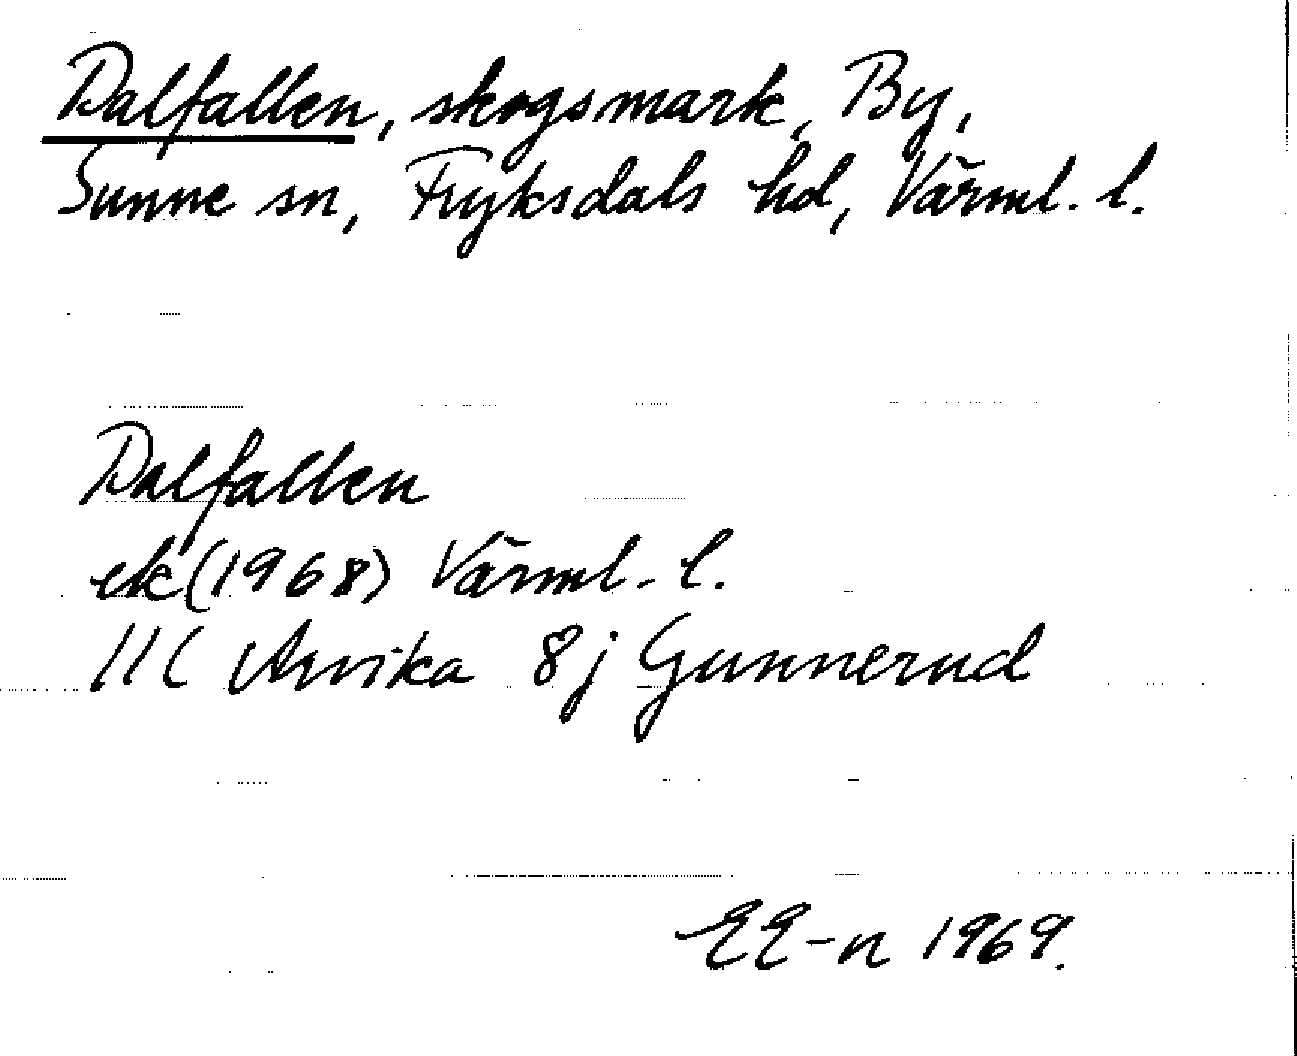 Dalfallen, skogsmark, By,
Sunne sn, Fryksdals hd, Värml. l.
Dalfallen
ek (1968) Värml. l.
11C Arvika 8j Gunnerud
EE-n 1969.